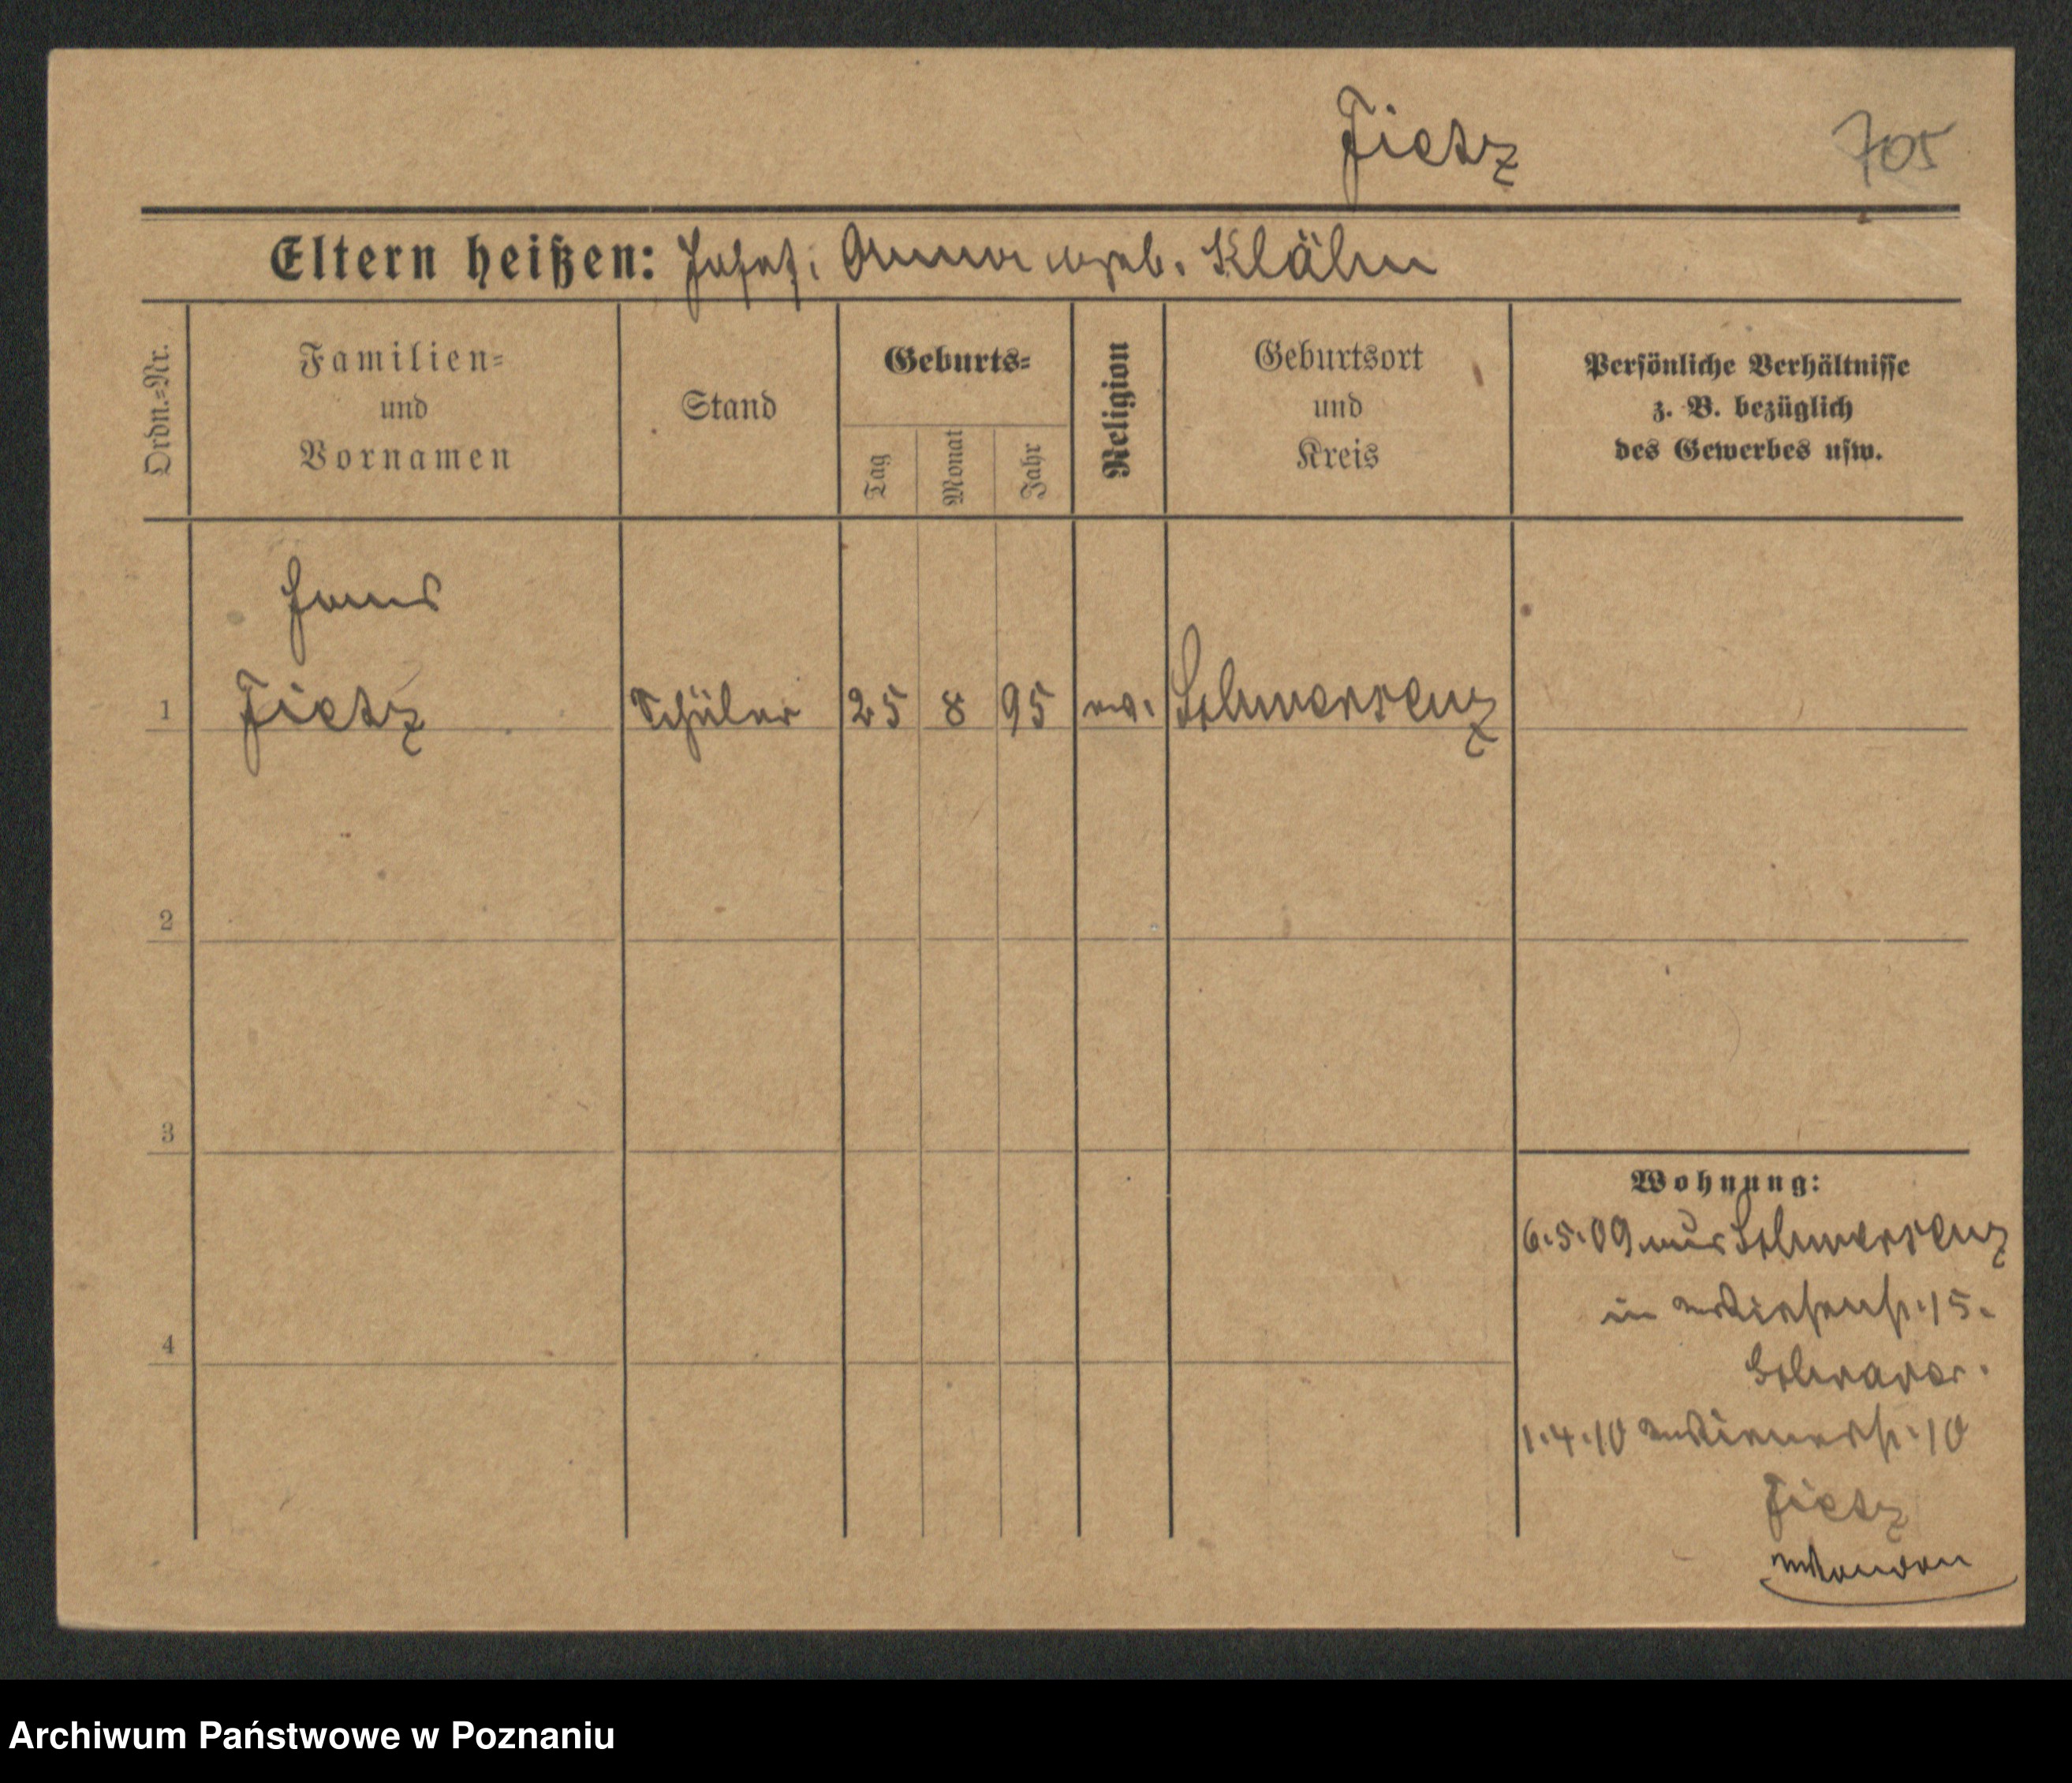 Fietz 705
Eltern heißen: Josef; Anna geb. Klähn
Ordn.-Nr.
Familien-
und
Vornamen
Stand
Geburts-
Tag
Monat
Jahr
Religion
Geburtsort
und
Kreis
Persönliche Verhältnisse
z. B. bezüglich
des Gewerbes usw.
Hans
1 Fietz Schüler 25 8 95 ev. Schwersenz
2
3
4
Wohnung:
6.5.09 aus Schwersenz
in Wiesenstr. 15.
1.4.10 10
Fietz